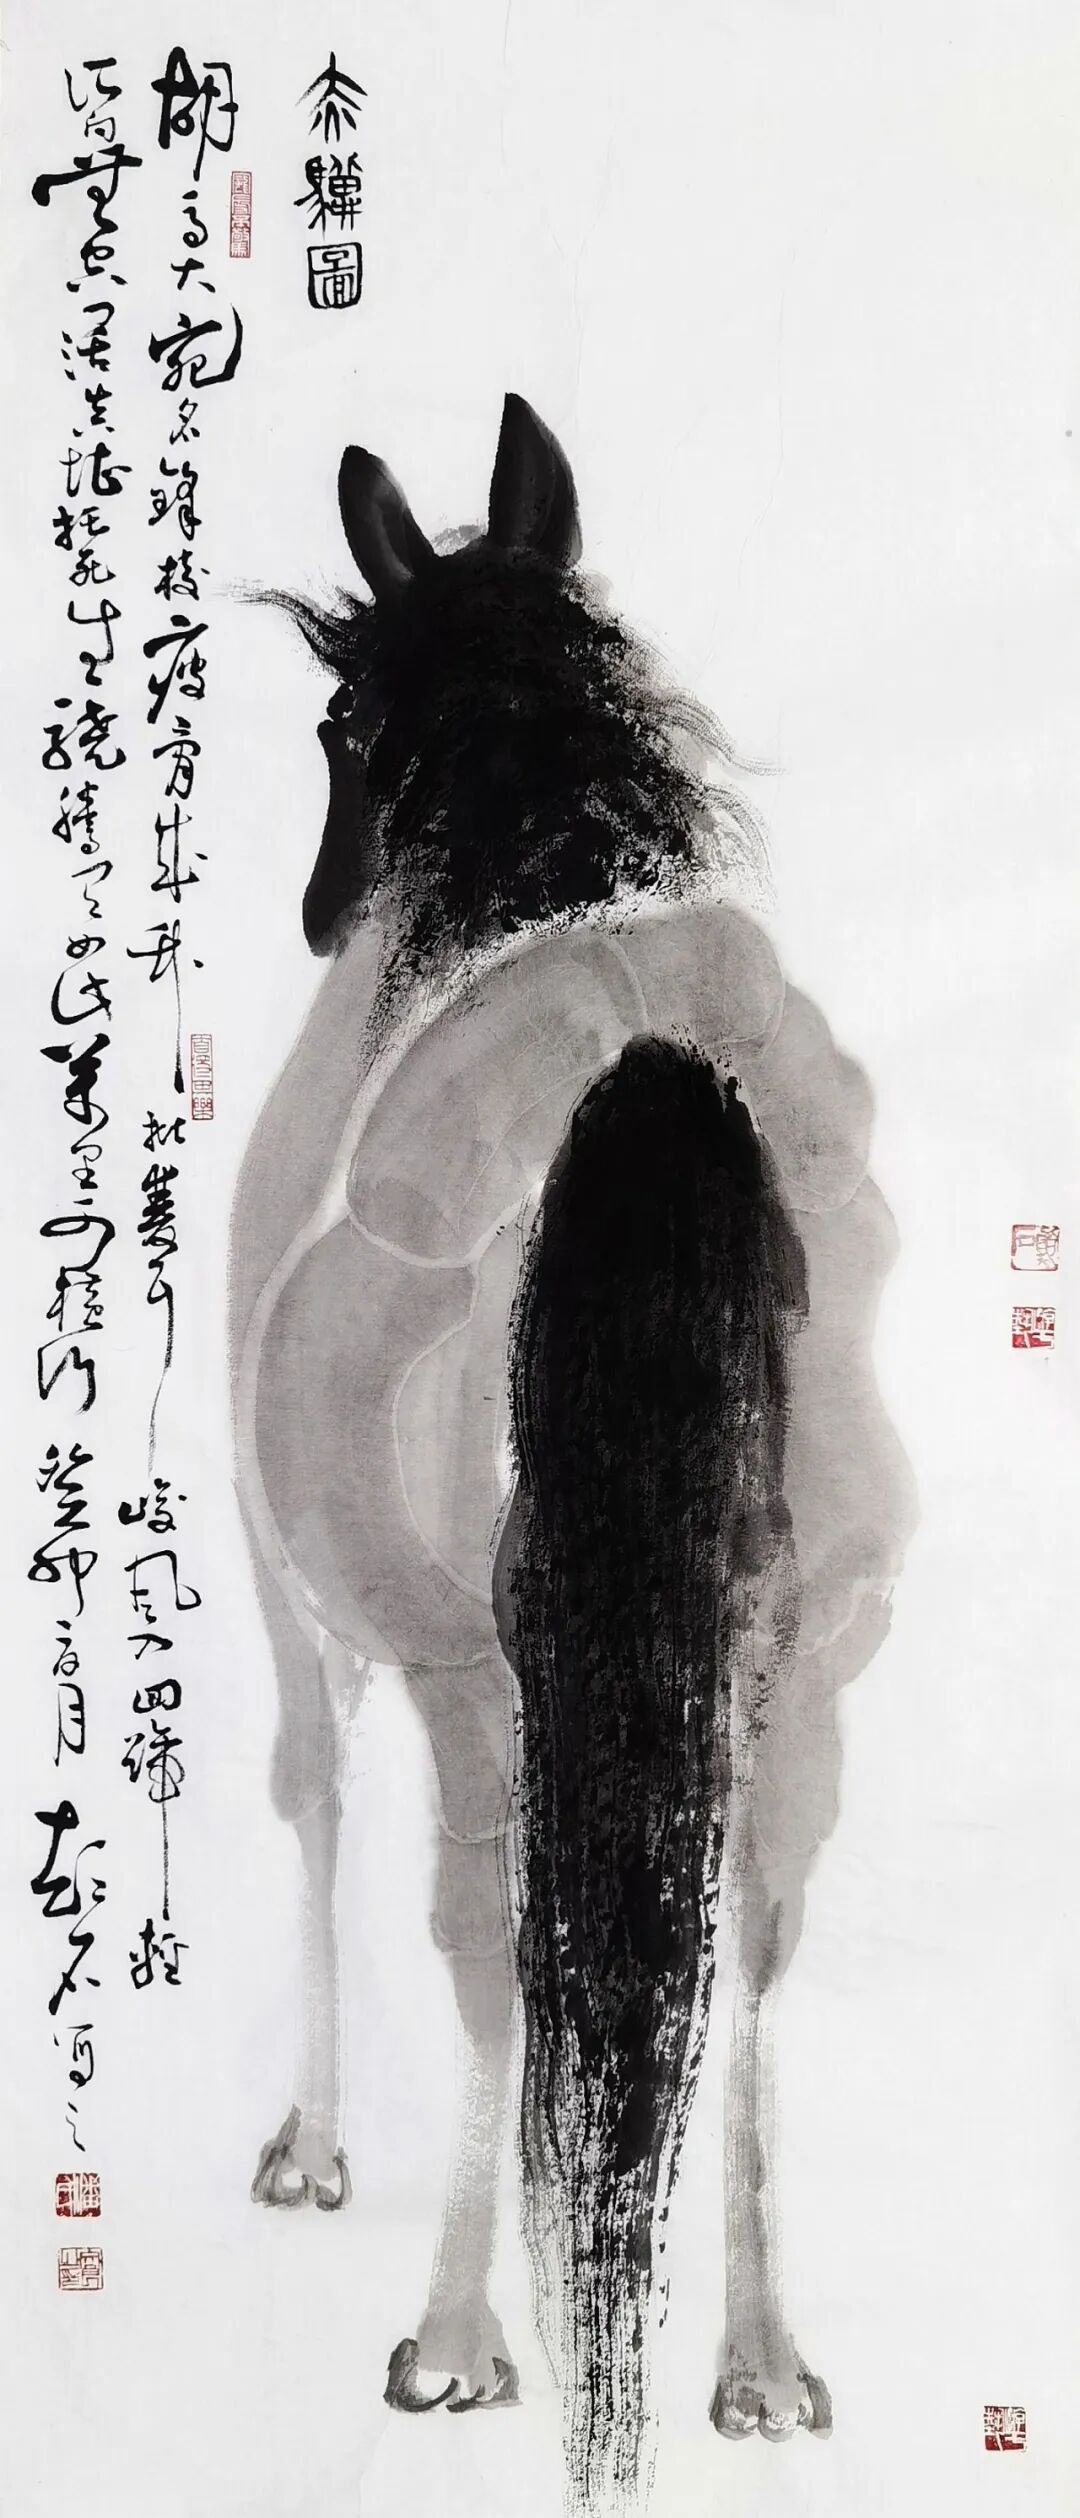 圖
胡馬大宛名鋒棱瘦骨成竹批雙耳峻風入四蹄輕
所向無空闊真堪托死生驍騰有如此萬里可橫行癸卯月石寫之